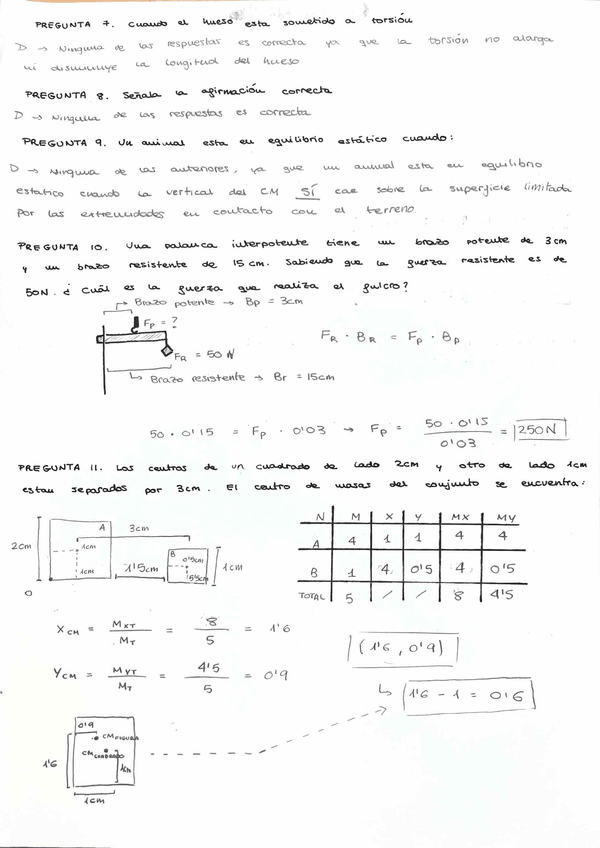 PREGUNTA 7. Cuando el hueso esta sometido a torsión
D → Ninguna de las respuestas es correcta ya que la torsión no alarga
ni disminuye la longitud del hueso
PREGUNTA 8. Señala la afirmación correcta
D → Ninguna de las respuestas es correcta
PREGUNTA 9. Un animal esta en equilibrio estático cuando:
D → Ninguna de las anteriores, ya que un animal esta en equilibrio
estatico cuando la vertical del CM SÍ cae sobre la superficie limitada
por las extremidades en contacto con el terreno.
PREGUNTA 10. Una palanca interpotente tiene un brazo potente de 3cm
y un brazo resistente de 15cm. Sabiendo que la fuerza resistente es de
50N. ¿Cuál es la fuerza que realiza el fulcro?
Brazo potente → Bp = 3cm
Fp = ?
FR · BR = Fp · Bp
FR = 50 N
Brazo resistente → Br = 15cm
50 · 0'15 = Fp · 0'03 → Fp = 50 · 0'15 / 0'03 = 250N
PREGUNTA 11. Los centros de un cuadrado de lado 2cm y otro de lado 1cm
estan separados por 3cm. El centro de masas del conjunto se encuentra:
N M X Y MX MY
A 4 1 1 4 4
B 1 4 0'5 4 0'5
TOTAL 5 / / 8 4'5
A 3cm
2cm 1cm 1cm
1'5cm
B 0'5cm
1cm
0
XCM = MXT / MT = 8 / 5 = 1'6
(1'6, 0'9)
YCM = MYT / MT = 4'5 / 5 = 0'9
1'6 - 1 = 0'6
0'9
CM FIGURA
CM CUADRADO
1'6
1cm
1cm